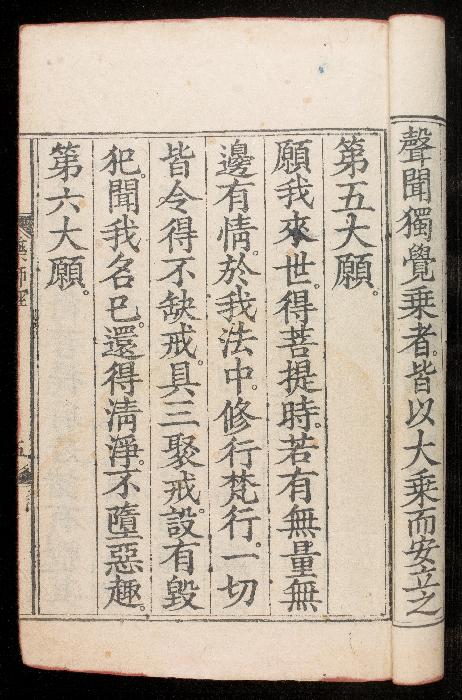 聲聞獨覺乗者。皆以大乗而安立之
第五大願。
願我來世。得菩提時。若有無量無
邊有情。於我法中。修行梵行。一切
皆令得不缺戒。具三聚戒。設有毀
犯。聞我名已。還得淸淨。不墮惡趣。
第六大願。
藥師經
五